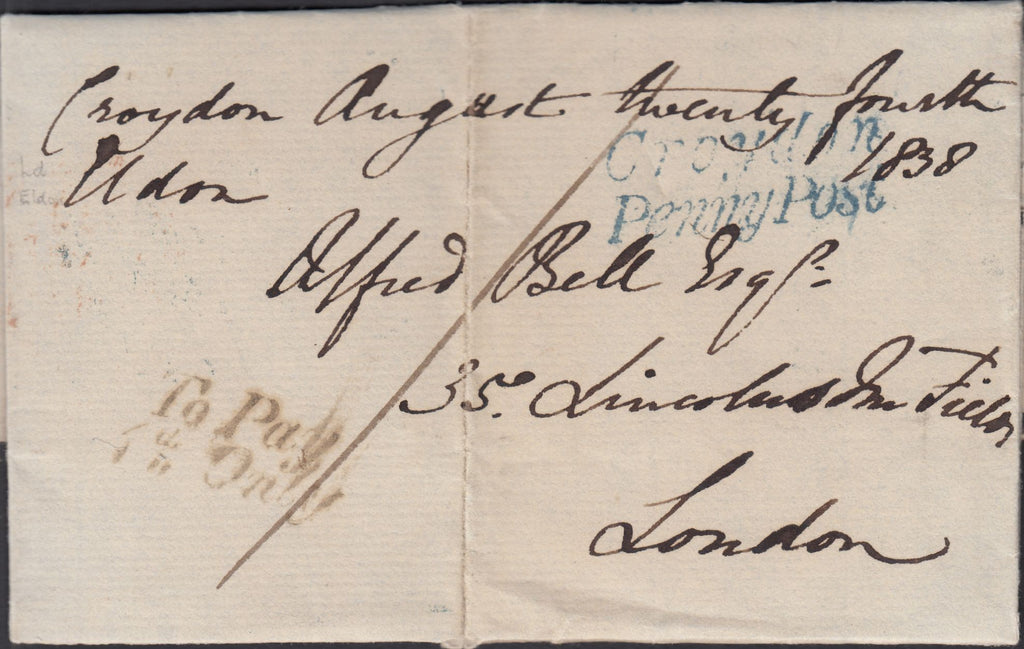 Croydon August twenty fourth
1838
Eldon
Croydon
Penny Post
Ld
Eldon
Alfred Bell Esqr.
35. Lincolns Inn Fields
To Pay
1d Only
London